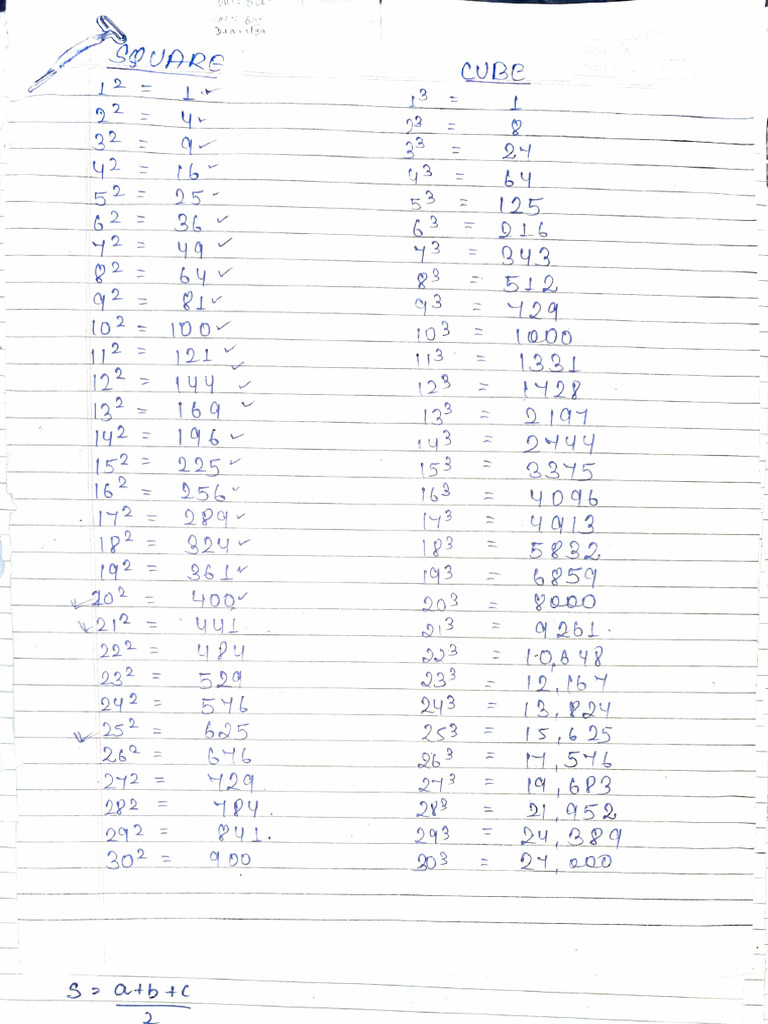 SQUARE
1² = 1
2² = 4
3² = 9
4² = 16
5² = 25
6² = 36
7² = 49
8² = 64
9² = 81
10² = 100
11² = 121
12² = 144
13² = 169
14² = 196
15² = 225
16² = 256
17² = 289
18² = 324
19² = 361
20² = 400
21² = 441
22² = 484
23² = 529
24² = 576
25² = 625
26² = 676
27² = 729
28² = 784.
29² = 841.
30² = 900
CUBE
1³ = 1
2³ = 8
3³ = 27
4³ = 64
5³ = 125
6³ = 216
7³ = 343
8³ = 512
9³ = 729
10³ = 1000
11³ = 1331
12³ = 1728
13³ = 2197
14³ = 2744
15³ = 3375
16³ = 4096
17³ = 4913
18³ = 5832
19³ = 6859
20³ = 8000
21³ = 9261.
22³ = 10,648
23³ = 12,167
24³ = 13,824
25³ = 15,625
26³ = 17,576
27³ = 19,683
28³ = 21,952
29³ = 24,389
30³ = 27,000
S = a+b+c
2